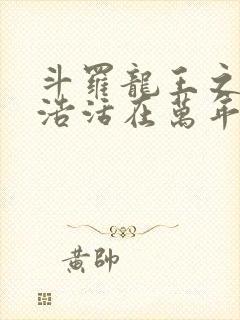 斗羅龍王之
浩活在萬年
黃帥